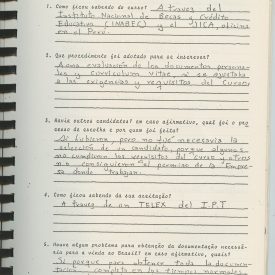 1. Como ficou sabendo do curso? A traves del
Instituto Nacional de Becas y Crédito
Educativo (INABEC) y el JICA, oficina
en el Perú.
2. Que procedimento foi adotado para se inscrever?
una evaluación de los documentos persona-
les y curriculum vitae, si se ajustaba
a las exigencias y requisitos del Curso
3. Havia outros candidatos? em caso afirmativo, qual foi o pro
cesso de escolha e por quem foi feita?
Si hubieron, pero no fué necesaria la
selección de un candidato, porque algunos
no cumplieron los requisitos del curso y otros
no consiguieron el permiso de la Empre-
sa donde trabajan.
4. Como ficou sabendo da sua aceitação?
A traves de un TELEX del I.P.T
5. Houve algum problema para obtenção da documentação necessá-
ria para a vinda ao Brasil? em caso afirmativo, quais?
Si porque para obtener toda la documen-
tación completa en los tiempos normales